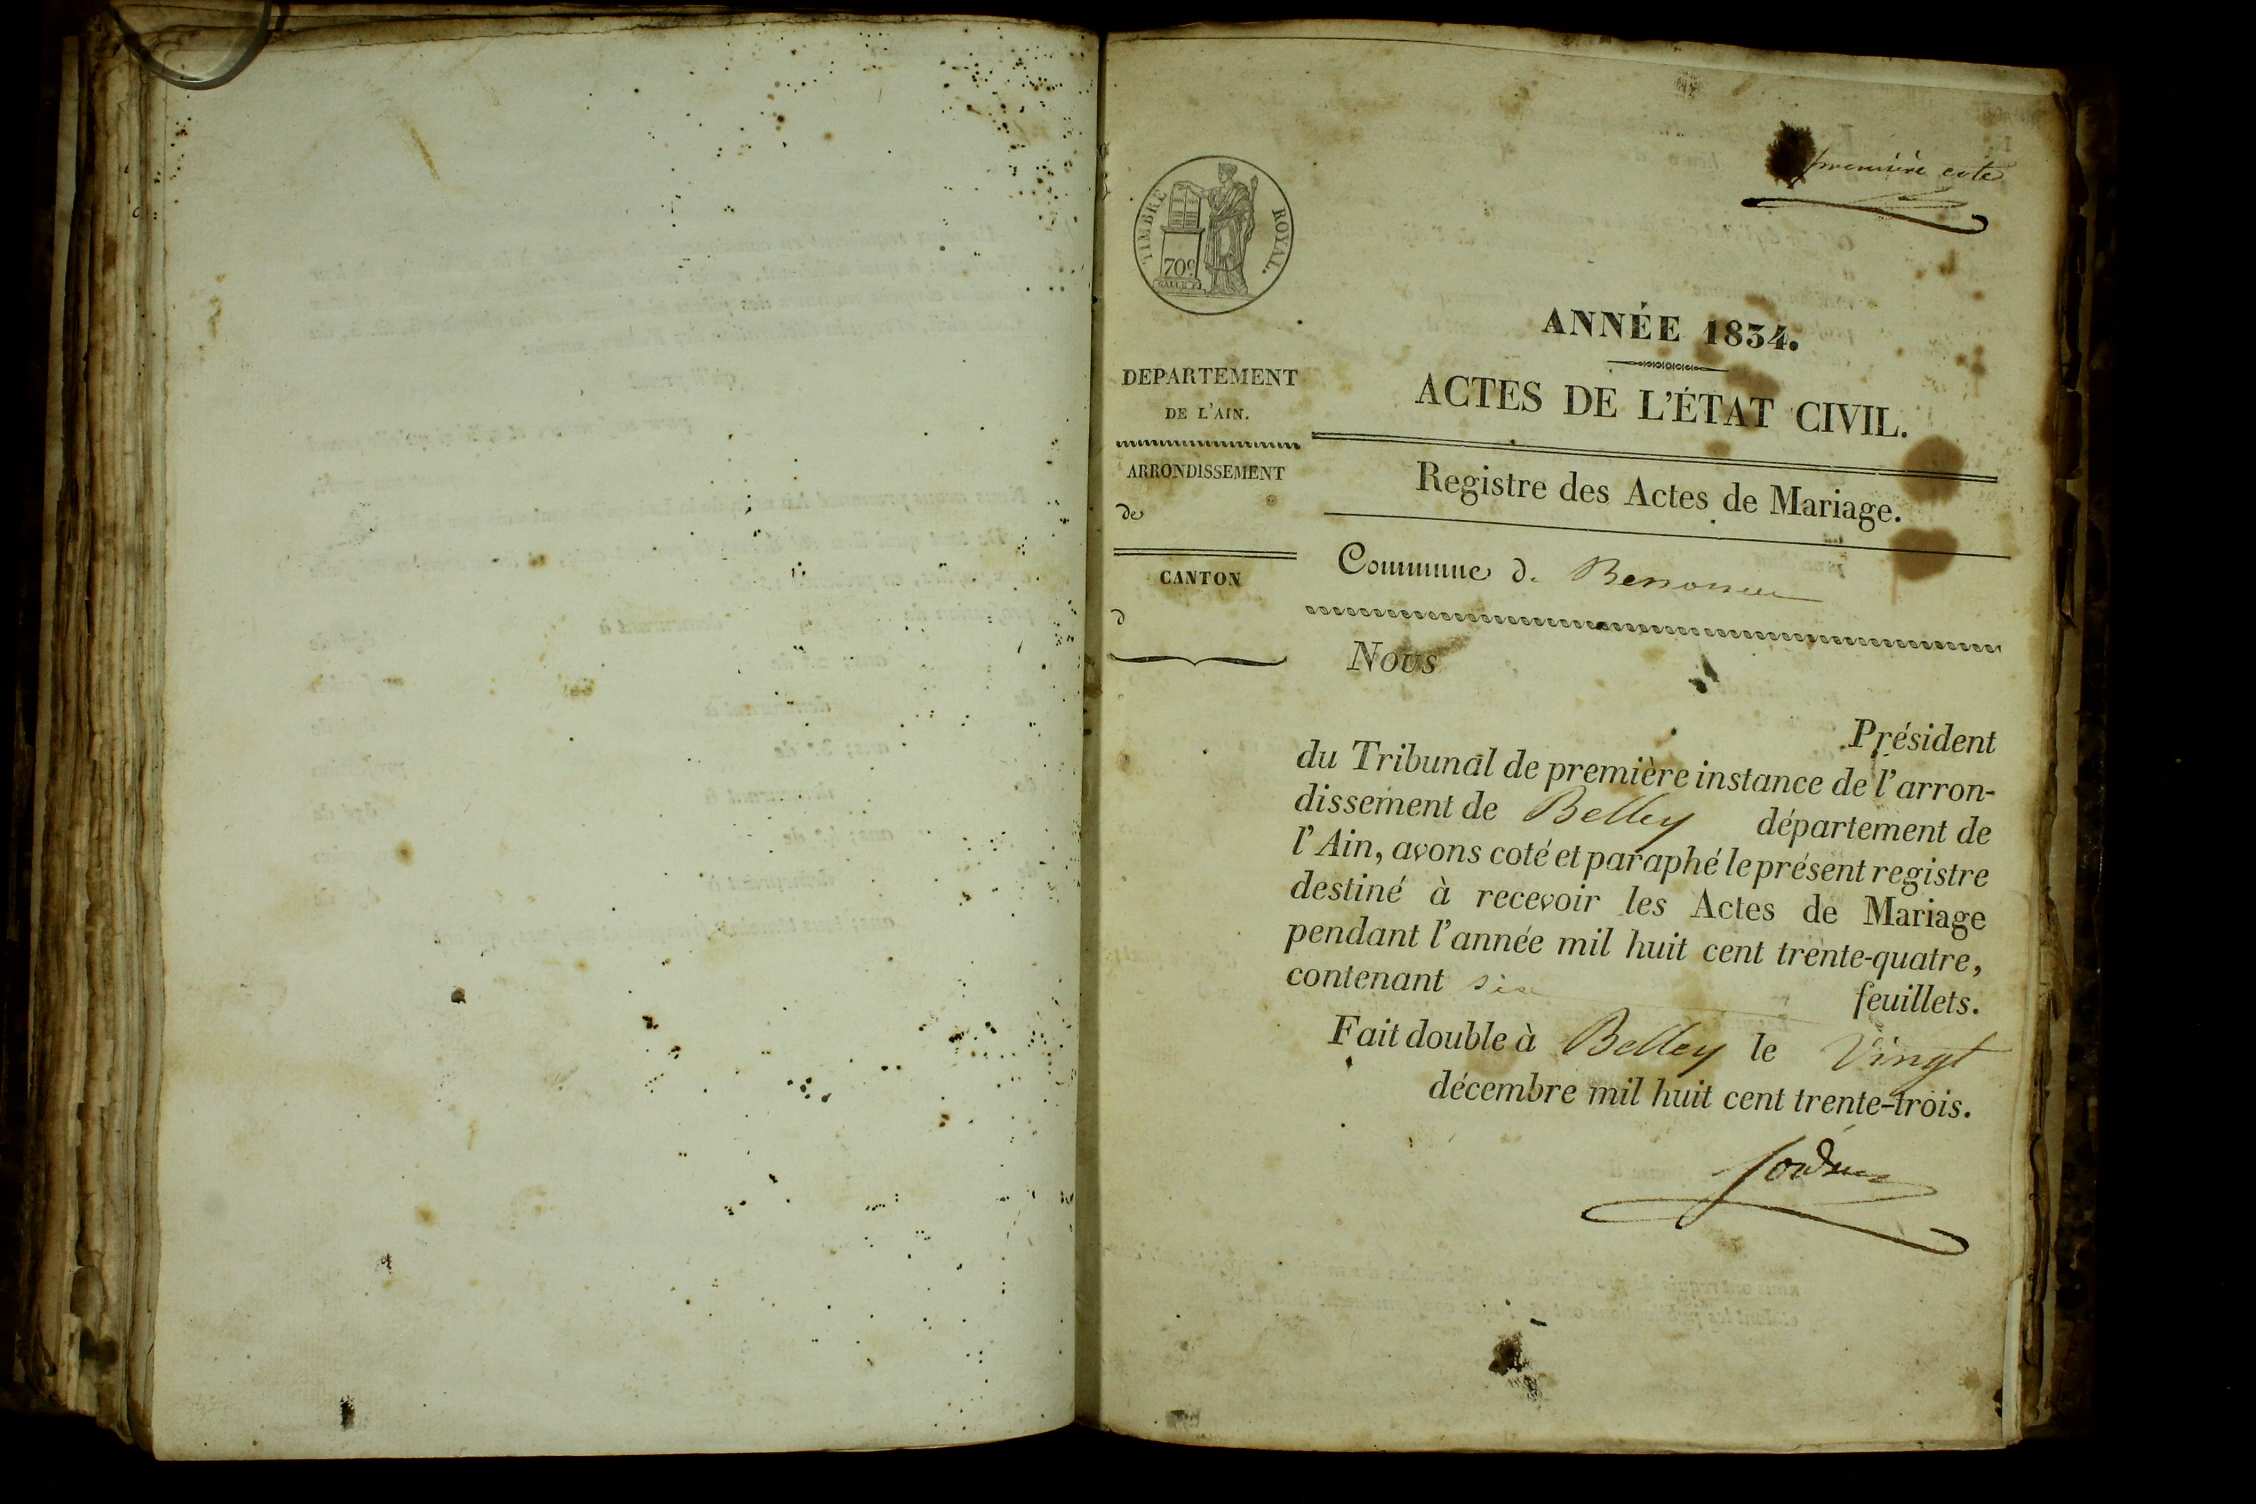 première cote
TIMBRE ROYAL.
70c
ANNÉE 1834.
ACTES DE L'ÉTAT CIVIL.
DEPARTEMENT
DE L'AIN.
ARRONDISSEMENT
de
CANTON
d
Registre des Actes de Mariage.
Commune de
Nous
Président
du Tribunal de première instance de l'arron-
dissement de Belley département de
l'Ain, avons coté et paraphé le présent registre
destiné à recevoir les Actes de Mariage
pendant l'année mil huit cent trente-quatre,
contenant six feuillets.
Fait double à Belley le Vingt
décembre mil huit cent trente-trois.